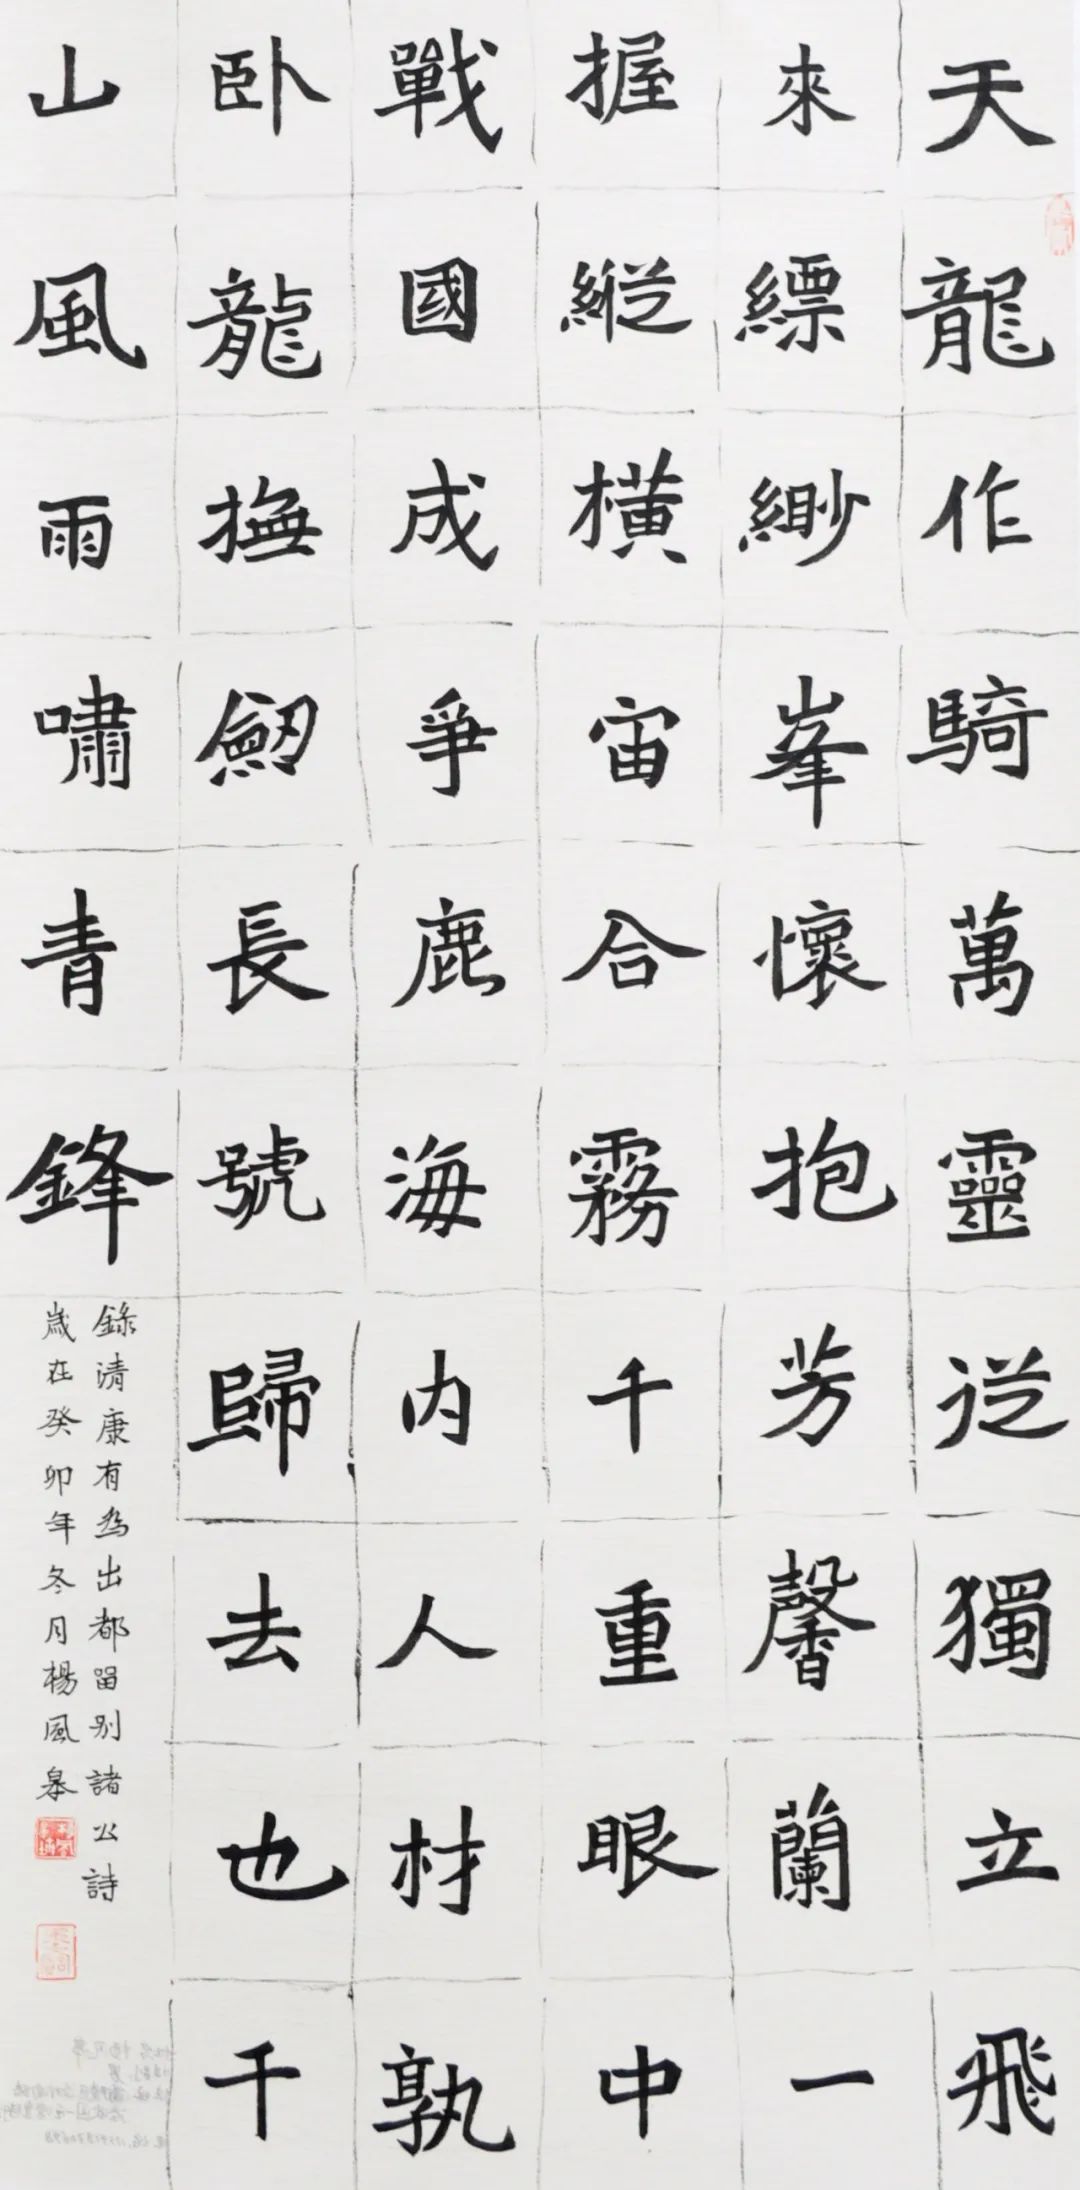 天龍作騎萬靈從獨立飛
來縹緲峯懷抱芳馨蘭一
握縱橫宙合霧千重眼中
戰國成爭鹿海內人材孰
卧龍撫劒長號歸去也千
山風雨嘯青鋒
錄清康有為出都留别諸公詩
歲在癸卯年冬月楊風皋